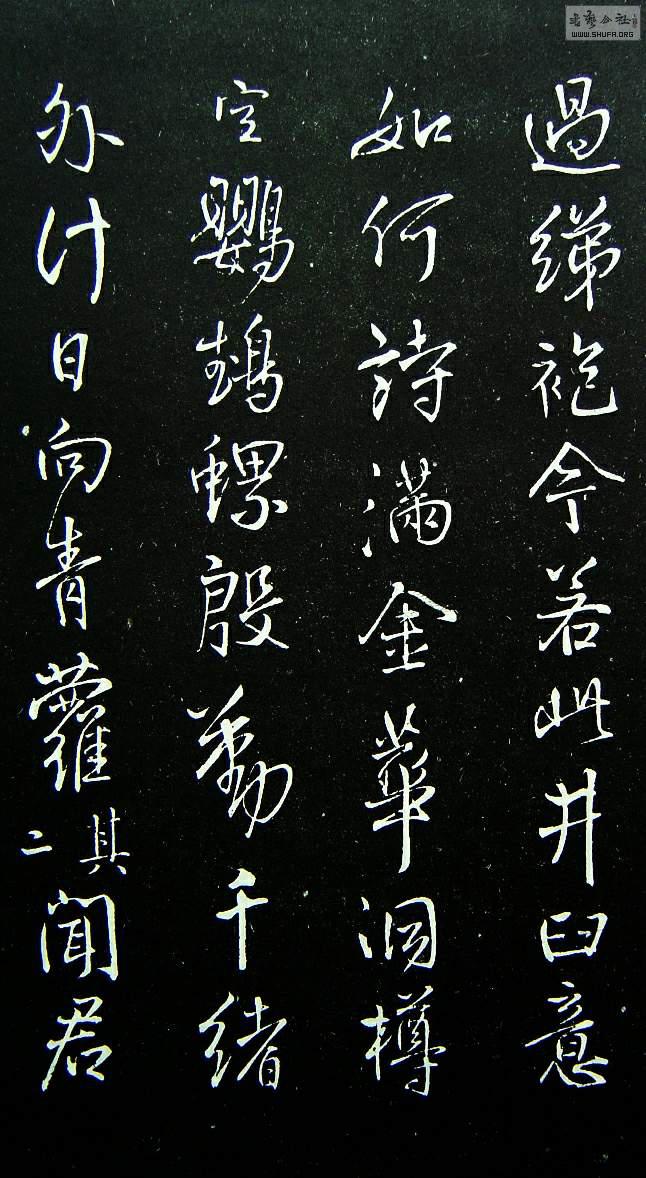 過綈袍今若此井臼意
如何詩滿金華洞樽
空鸚鵡螺殷勤千緒
外計日向青蘿其二聞君
书艺公社
WWW.SHUFA.ORG